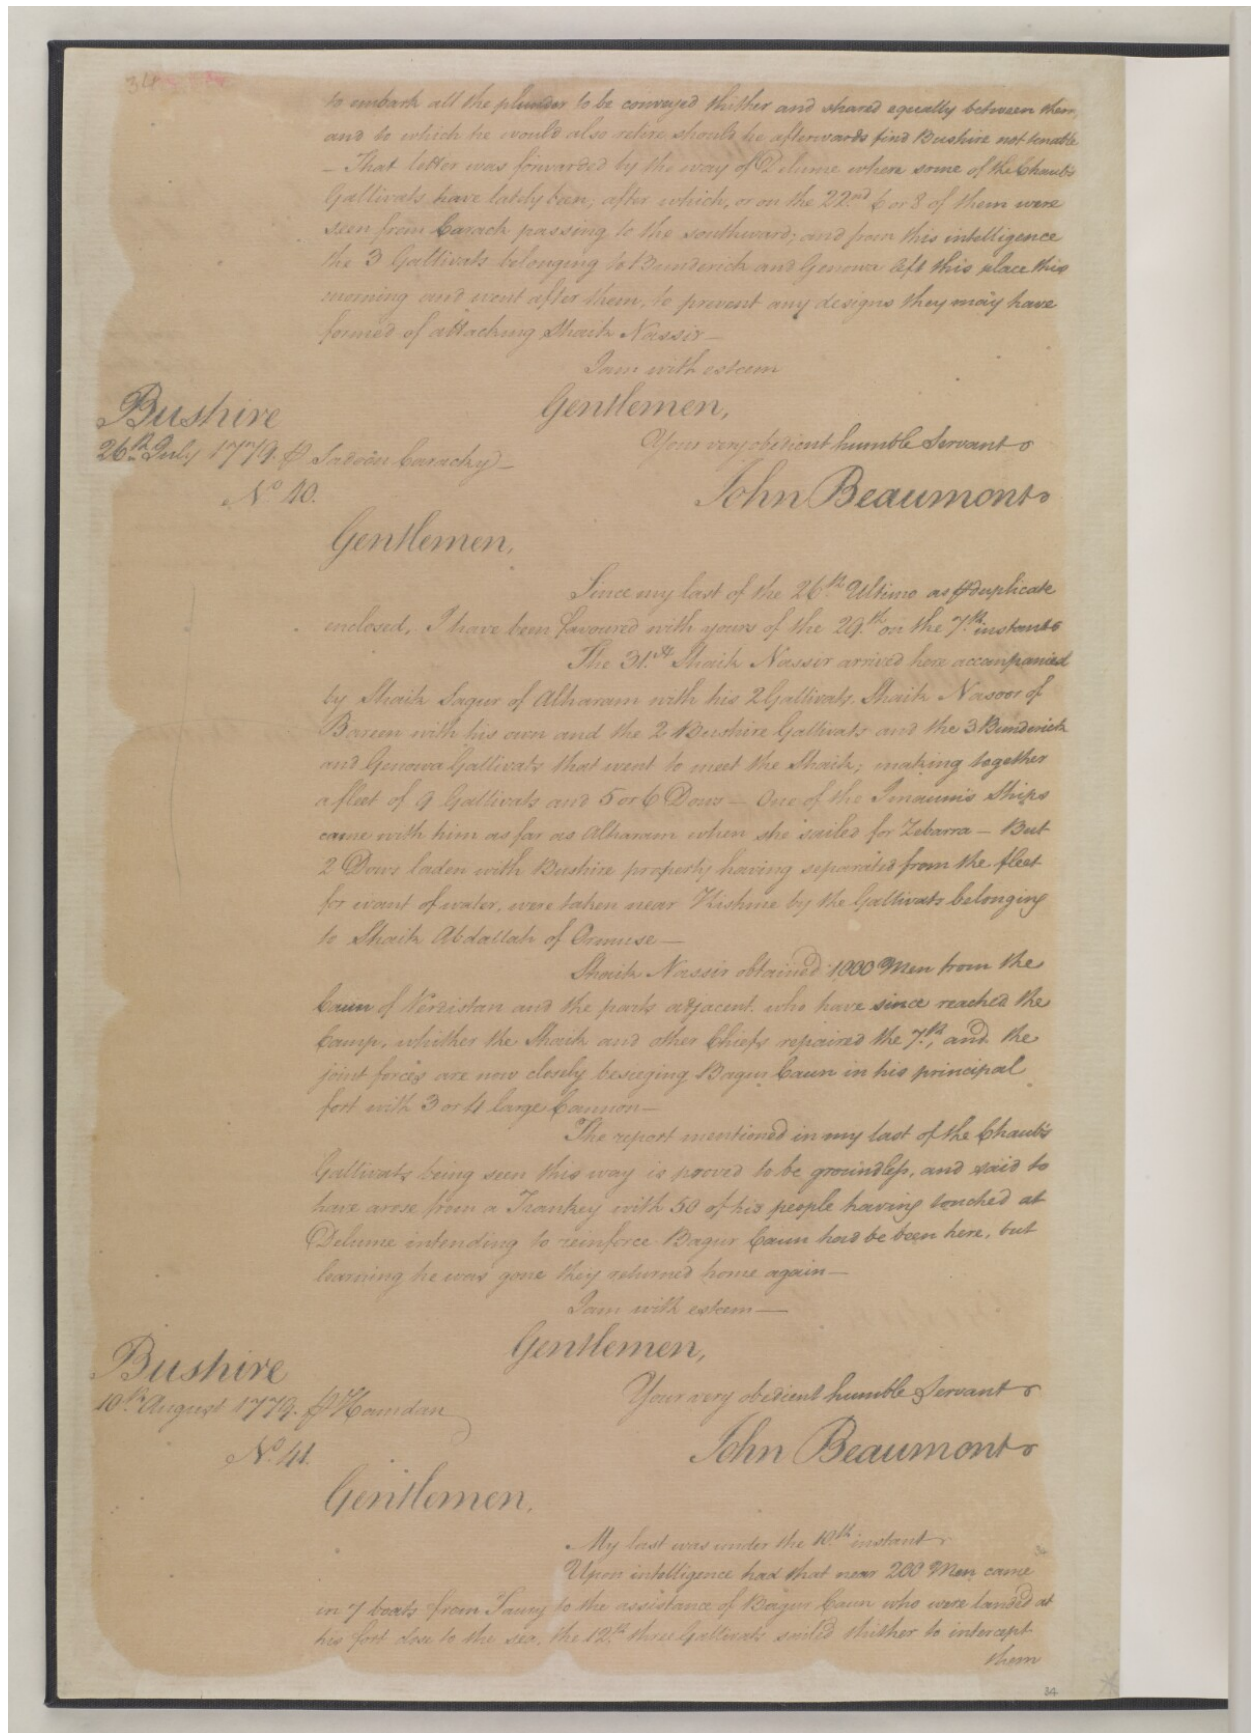 34
to embark all the plunder to be conveyed thither and shared equally between them,
and to which he would also retire should he afterwards find Bushire not tenable
— That letter was forwarded by the way of Delume where some of the Chaub's
Gallivats have lately been; after which, or on the 22nd 6 or 8 of them were
seen from Carack passing to the southward; and from this intelligence
the 3 Gallivats belonging to Bunderick and Genowa left this place this
morning and went after them, to prevent any designs they may have
formed of attacking Shaik Nassir —
I am with esteem
Gentlemen,
Bushire
Your very obedient humble Servant
26th July 1779. P Caracky —
John Beaumont
No 40.
Gentlemen,
Since my last of the 26th Ultimo as P duplicate
enclosed, I have been favoured with yours of the 29th on the 7th instant
The 31st Shaik Nassir arrived here accompanied
by Shaik Sagur of Alharam with his 2 Gallivats, Shaik Nasoor of
Bareen with his own and the 2 Bushire Gallivats and the 3 Bunderick
and Genowa Gallivats that went to meet the Shaik; making together
a fleet of 9 Gallivats and 5 or 6 Dows — One of the Imaum's Ships
came with him as far as Alharam when she sailed for Zebarra — But
2 Dows laden with Bushire property having separated from the fleet
for want of water, were taken near Kishme by the Gallivats belonging
to Shaik Abdallah of Ormuse —
Shaik Nassir obtained 1000 Men from the
Caun of Verdistan and the parts adjacent who have since reached the
Camp, whither the Shaik and other Chiefs repaired the 7th, and the
joint forces are now closely besieging Bagur Caun in his principal
fort with 3 or 4 large Cannon —
The report mentioned in my last of the Chaub's
Gallivats being seen this way is proved to be groundless, and said to
have arose from a Trankey with 50 of his people having touched at
Delume intending to reinforce Bagur Caun had he been here, but
learning he was gone they returned home again —
I am with esteem —
Gentlemen,
Bushire
Your very obedient humble Servant
10th August 1779. P Hamdan
John Beaumont
No 41.
Gentlemen,
My last was under the 10th instant
Upon intelligence had that near 200 Men came
in 7 boats from to the assistance of Bagur Caun who were landed at
his fort close to the sea, the 12th three Gallivats sailed thither to intercept
them
34